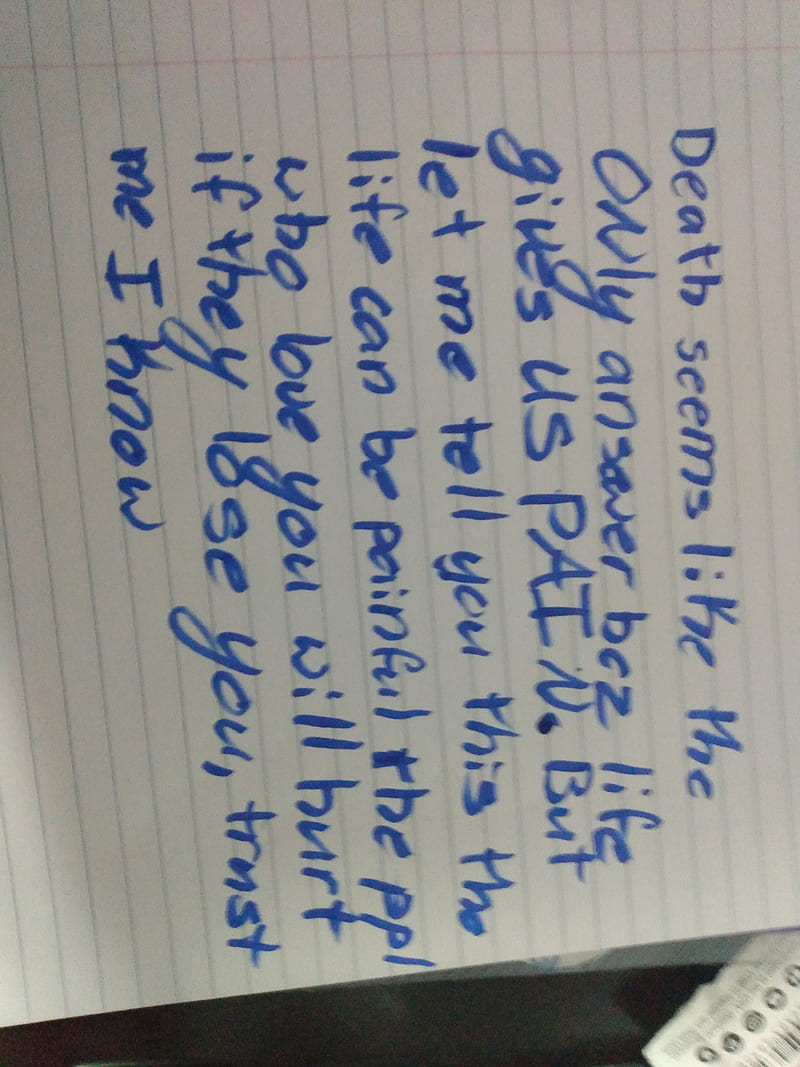 Death seems like the
ONly answer bcz life
gives US PAIN. But
let me tell you this tho
life can be painful the ppl
who love you will hurt
if they lose you, trust
me I know